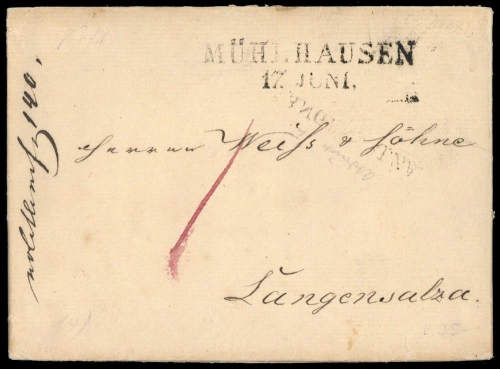 MÜHLHAUSEN
17 JUNI.
Herren Weiss & Söhne
Langensalza.
140.